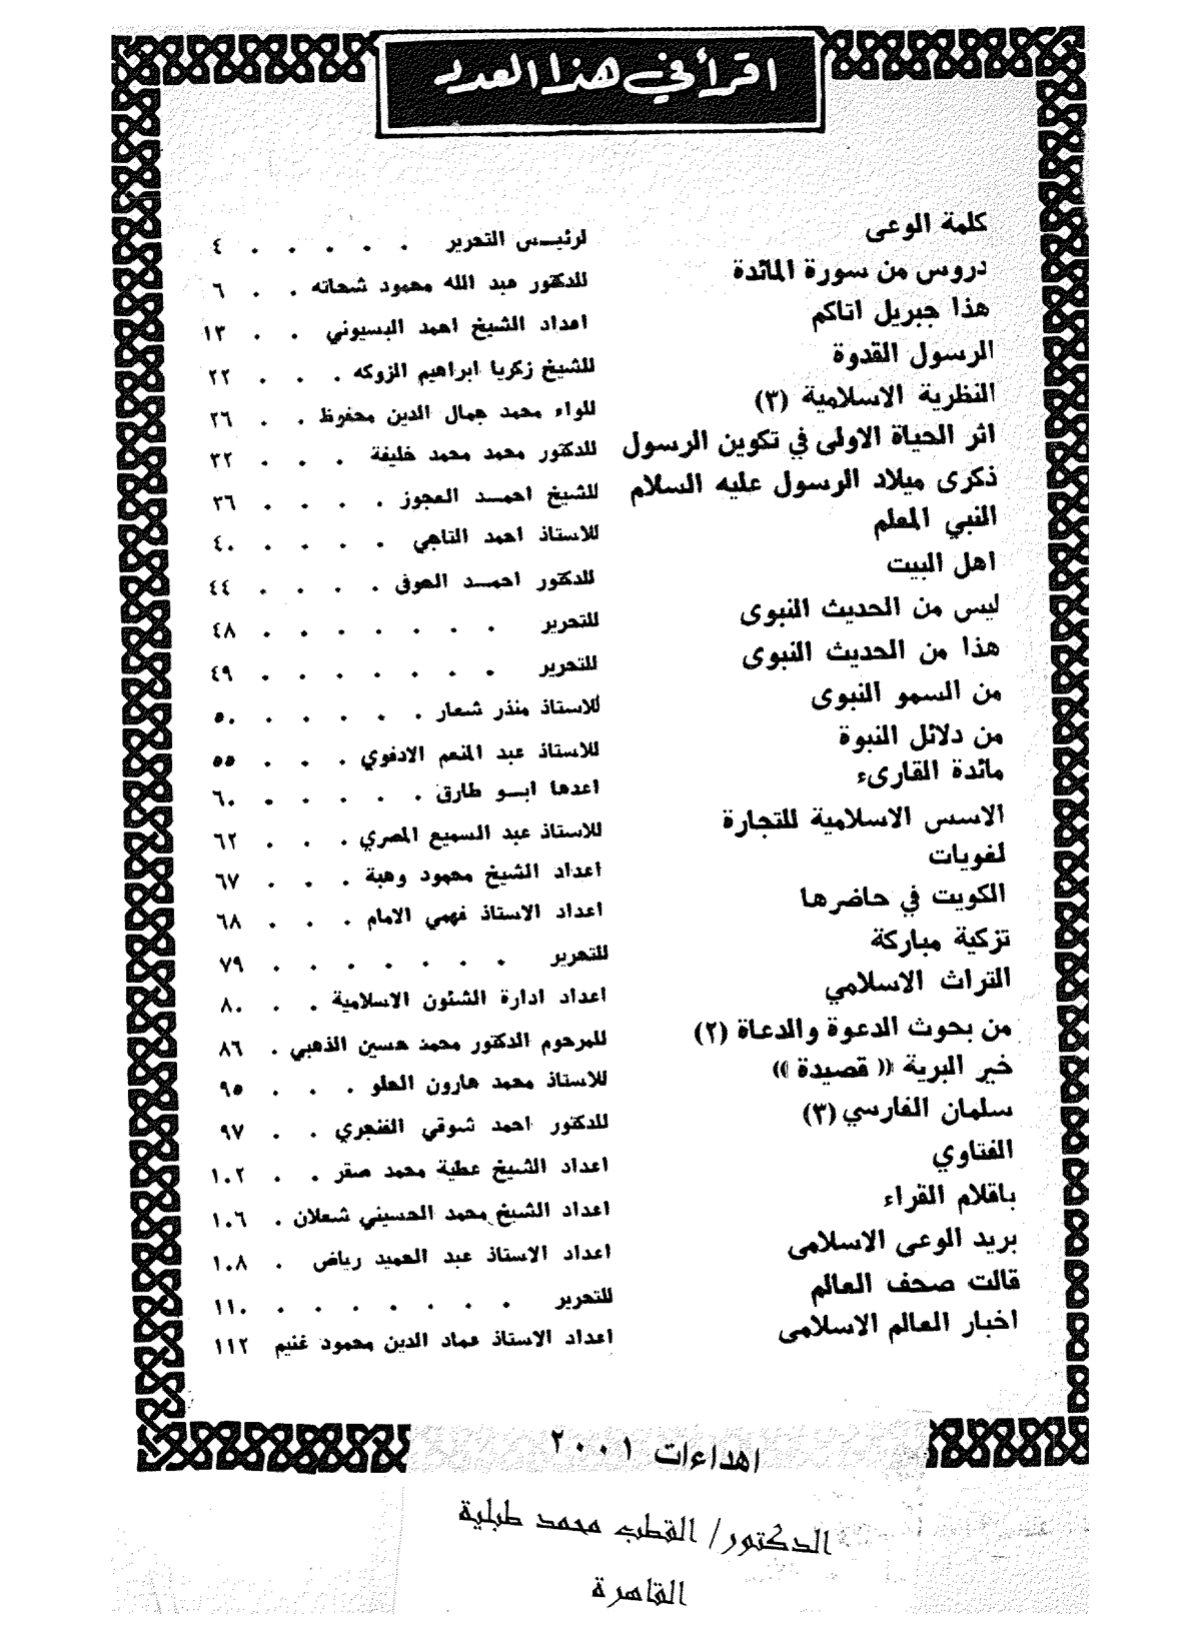 اقرأ في هذا العدد
كلمة الوعى لرئيس التحرير . . . . . ٤
دروس من سورة المائدة للدكتور عبد الله محمود شحاته . . ٦
هذا جبريل اتاكم اعداد الشيخ احمد البسيوني . . ١٣
الرسول القدوة للشيخ زكريا ابراهيم الزوكه . . . ٢٢
النظرية الاسلامية (٣) للواء محمد جمال الدين محفوظ . . ٢٦
اثر الحياة الاولى في تكوين الرسول للدكتور محمد محمد خليفة . . . ٣٢
ذكرى ميلاد الرسول عليه السلام للشيخ احمد العجوز . . . . ٣٦
النبي المعلم للاستاذ احمد التاجي . . . . ٤٠
اهل البيت للدكتور احمد الحوفى . . . . ٤٤
ليس من الحديث النبوى للتحرير . . . . . . . ٤٨
هذا من الحديث النبوى للتحرير . . . . . . . ٤٩
من السمو النبوى للاستاذ منذر شعار . . . . . ٥٠
من دلائل النبوة للاستاذ عبد المنعم الادفوي . . . ٥٥
مائدة القارىء اعدها ابو طارق . . . . . ٦٠
الاسس الاسلامية للتجارة للاستاذ عبد السميع المصري . . . ٦٢
لغويات اعداد الشيخ محمود وهبة . . . ٦٧
الكويت في حاضرها اعداد الاستاذ فهمي الامام . . . ٦٨
تزكية مباركة للتحرير . . . . . . . ٧٩
التراث الاسلامي اعداد ادارة الشئون الاسلامية . . ٨٠
من بحوث الدعوة والدعاة (٢) للمرحوم الدكتور محمد حسين الذهبي . ٨٦
خير البرية (( قصيدة )) للاستاذ محمد هارون الحلو . . . ٩٥
سلمان الفارسي (٣) للدكتور احمد شوقي الفنجري . . ٩٧
الفتاوي اعداد الشيخ عطية محمد صقر . . ١٠٢
باقلام القراء اعداد الشيخ محمد الحسيني شعلان . ١٠٦
بريد الوعى الاسلامى اعداد الاستاذ عبد الحميد رياض . ١٠٨
قالت صحف العالم للتحرير . . . . . . . ١١٠
اخبار العالم الاسلامى اعداد الاستاذ عماد الدين محمود غنيم ١١٢
اهداءات ٢٠٠١
الدكتور/ القطب محمد طبلية
القاهرة